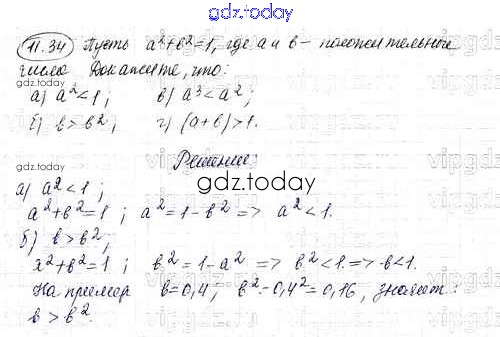 gdz.today
11.34 Пусть a²+b²=1, где a и b – положительные
числа. Докажите, что:
а) a²<1; в) a³<a²;
б) b>b²; г) (a+b)>1.
Решение:
gdz.today
а) a²<1;
a²+b²=1; a²=1-b² => a²<1.
б) b>b²;
a²+b²=1; b²=1-a² => b²<1. => b<1.
Например b=0,4; b²=0,4²=0,16, значит:
b>b².
gdz.today